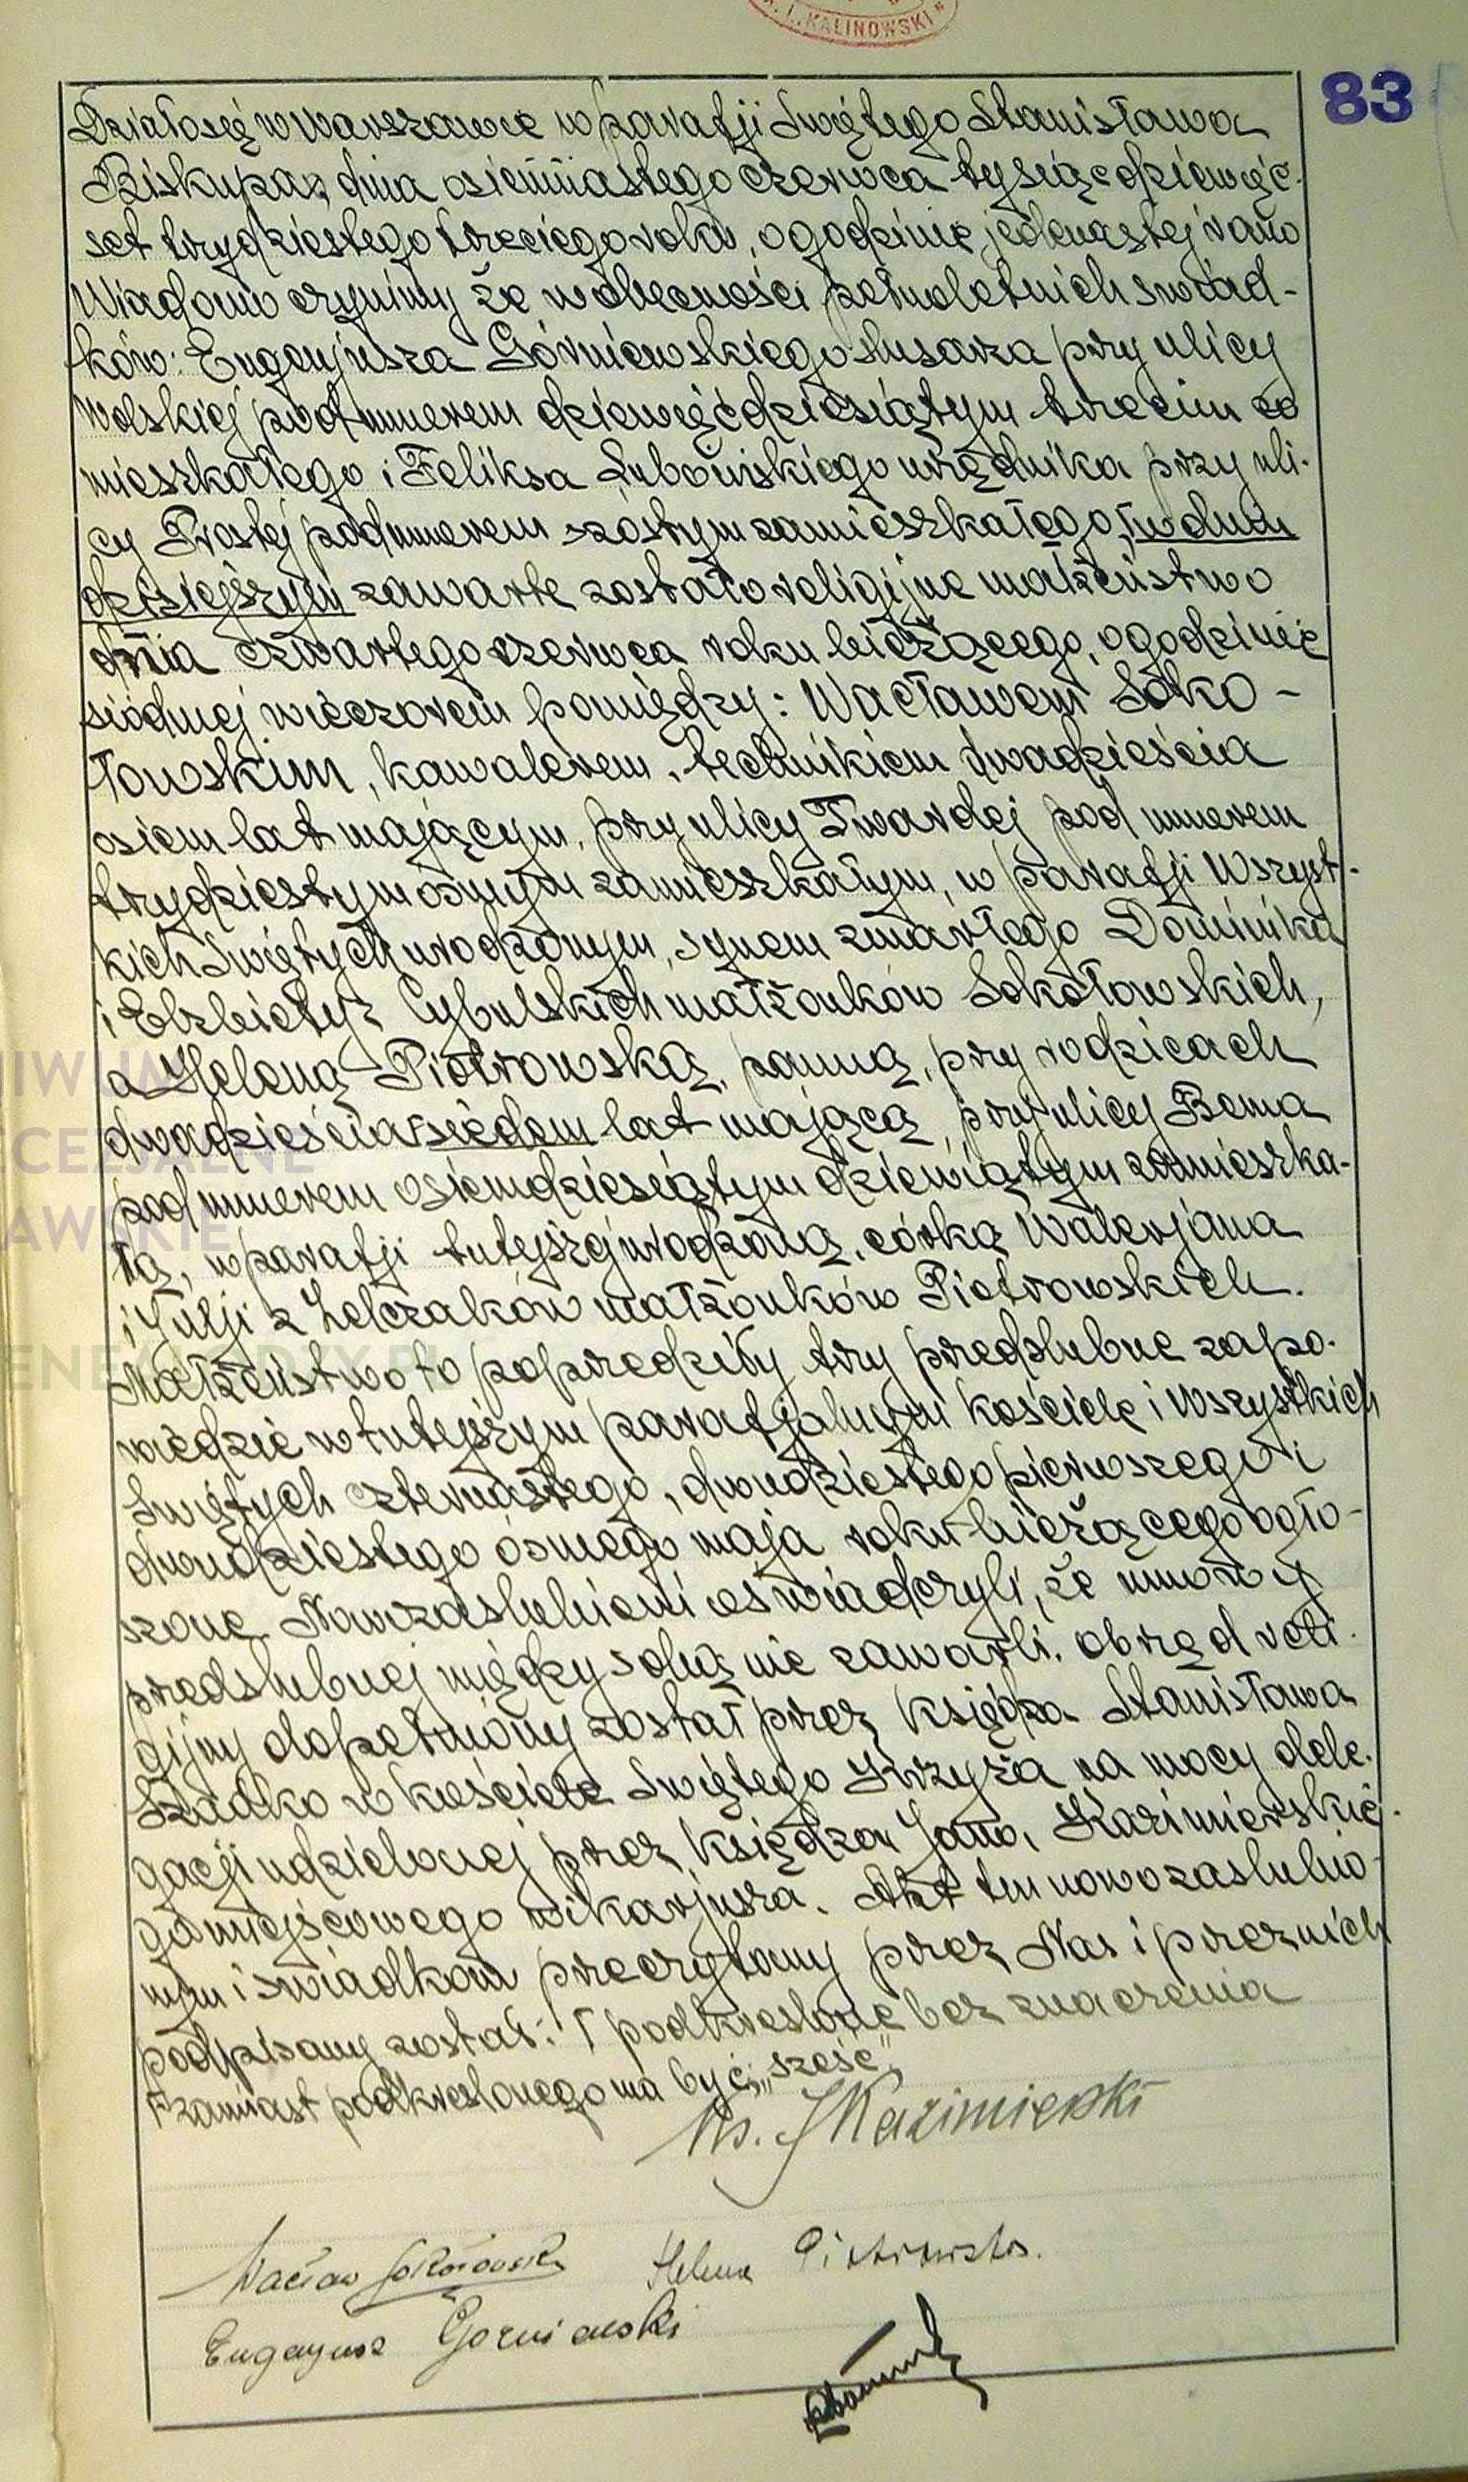 KALINOWSKI
83
Działo się w Warszawie w parafji Świętego Stanisława
Biskupa, dnia osiemnastego czerwca tysiąc dziewięć-
set trzydziestego trzeciego roku, o godzinie jedenastej rano
Wiadomo czynimy że w obecności pełnoletnich świad-
ków: Eugenjusza Górniewskiego ślusarza przy ulicy
Wolskiej pod numerem dziewięćdziesiątym trzecim za
mieszkałego i Feliksa urzędnika przy uli-
cy Prostej pod numerem szóstym zamieszkałego, w dniu
dzisiejszym zawarte zostało religijne małżeństwo
dnia czwartego czerwca roku bieżącego, o godzinie
siódmej wieczorem pomiędzy: Wacławem Soko-
łowskim, kawalerem, technikiem dwadzieścia
osiem lat mającym, przy ulicy Twardej pod numerem
trzydziestym ósmym zamieszkałym, w parafji Wszyst-
kich Świętych urodzonym, synem zmarłego Dominika
i Elżbiety z Cybulskich małżonków Sokołowskich,
a Heleną Piotrowską, panną, przy rodzicach
dwadzieścia siedem lat mającą, przy ulicy Bema
pod numerem osiemdziesiątym dziewiątym zamieszka-
łą, w parafji tutejszej urodzoną, córką Walerjana
i Julji z małżonków Piotrowskich.
Małżeństwo to poprzedziły trzy przedślubne zapo-
wiedzie w tutejszym parafjalnym kościele i Wszystkich
Świętych czternastego, dwudziestego pierwszego i
dwudziestego ósmego maja roku bieżącego ogło-
szone. Nowozaślubieni oświadczyli, że umowy
przedślubnej między sobą nie zawarli. Obrzęd reli-
gijny dopełniony został przez księdza Stanisława
Szadko w kościele Świętego Krzyża na mocy dele-
gacji udzielonej przez księdza Jana Kazimierskie-
go miejscowego wikarjusza. Akt ten nowozaślubio-
nym i świadkom przeczytany przez Nas i przez nich
podpisany został. T podkreślone bez znaczenia
F zamiast podkreślonego ma być: "sześć".
Ks. J Kazimierski
Wacław Sokołowski Helena Piotrowska.
Eugenjusz Gorniewski